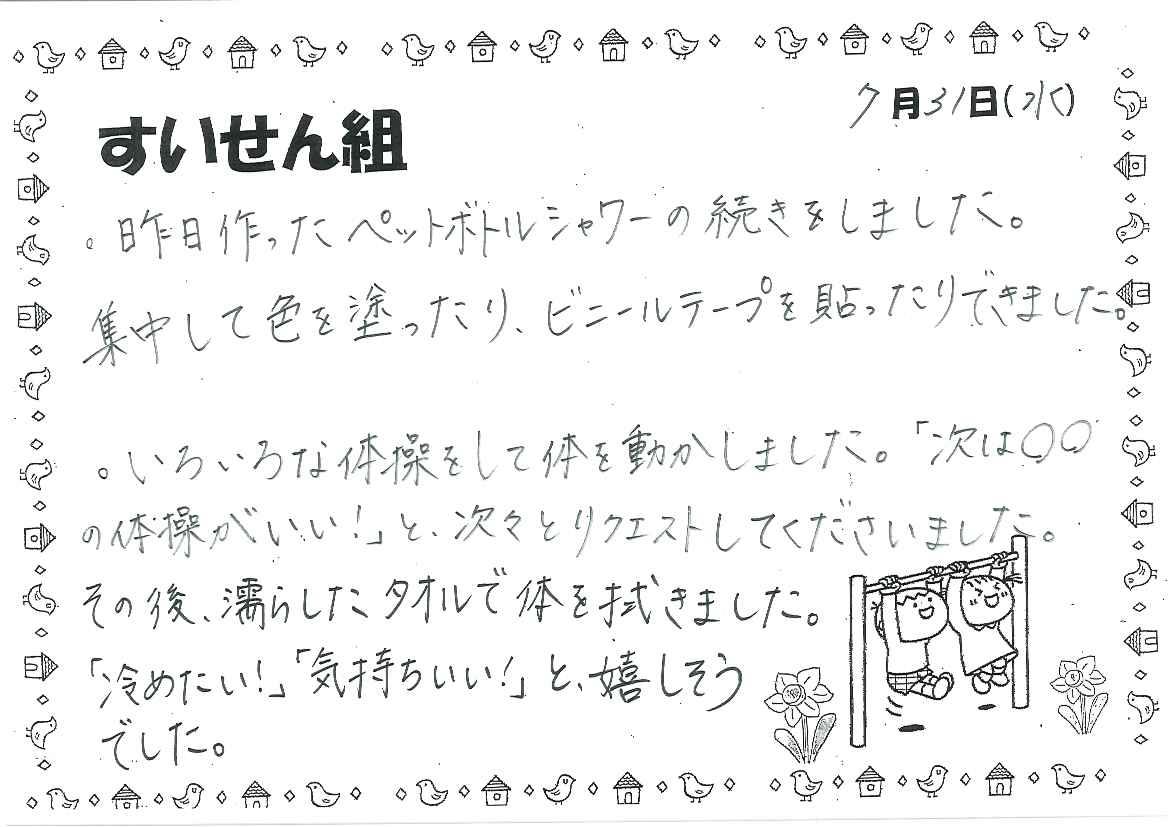 7月31日(水)
すいせん組
。昨日作ったペットボトルシャワーの続きをしました。
集中して色を塗ったり、ビニールテープを貼ったりできました。
。いろいろな体操をして体を動かしました。「次は〇〇
の体操がいい!」と、次々とリクエストしてくださいました。
その後、濡らしたタオルで体を拭きました。
「冷めたい!」「気持ちいい!」と、嬉しそう
でした。